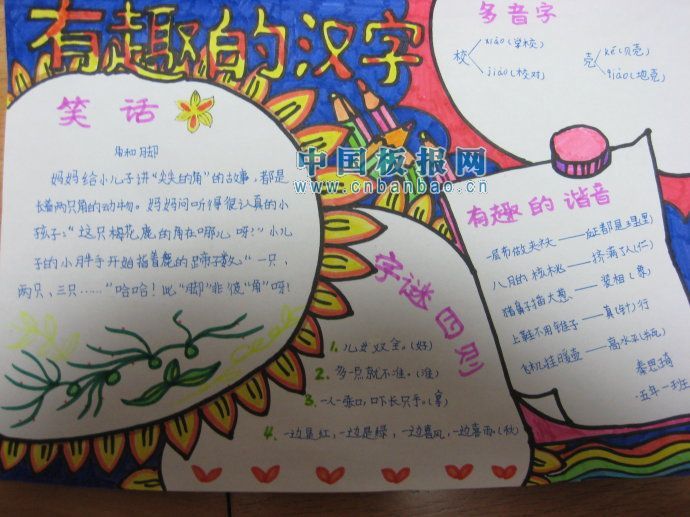 有趣的汉字
笑话
角和脚
妈妈给小儿子讲“尖尖的角”的故事，都是
长着两只角的动物。妈妈问听得很认真的小
孩子：“这只梅花鹿的角在哪儿呀？”小儿
子的小胖手开始指着鹿的蹄子数，“一只，
两只、三只……”“哈哈！此“脚”非彼“角”呀！
多音字
校
xiào（学校）
jiào（校对）
壳
ké（贝壳）
qiào（地壳）
中国板报网
www.cnbanbao.cn
有趣的谐音
层布做夹袄——反正都是里（理）
八月的核桃——挤满了人（仁）
猪鼻子插大葱——装相（象）
上鞋不用锥子——真（针）行
飞机挂暖壶——高水平（瓶）
五年一班
字谜四则
1、儿女双全。（好）
2、多一点就不准。（准）
3、一人一张口，口下长只手。（拿）
4、一边是红，一边是绿，一边喜风，一边喜雨。（秋）